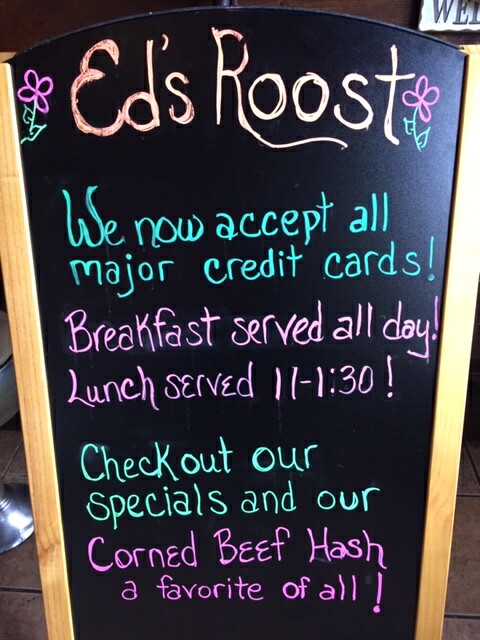 WEL
Ed's Roost
We now accept all
major credit cards!
Breakfast served all day!
Lunch served 11-1:30!
Check out our
specials and our
Corned Beef Hash
a favorite of all!